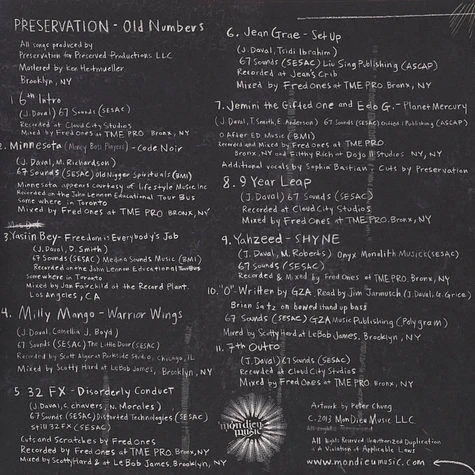 PRESERVATION - Old Numbers
All songs produced by
Preservation for Preserved Productions LLC
Mastered by Ken Heitmueller
Brooklyn, NY
1. 6th Intro
(J. Daval) 67 Sounds (SESAC)
Recorded at Cloud City Studios
Mixed by Fred Ones at TME PRO. Bronx, NY
2. Minnesota (Money Boss Players) - Code Noir
(J. Daval, M. Richardson)
67 Sounds (SESAC) Old Nigger Spirituals (BMI)
Minnesota appears courtesy of lifestyle Music Inc
Recorded on the John Lennon Educational Tour Bus
Somewhere in Toronto
Mixed by Fred Ones at TME PRO Bronx, NY
3. Yasiin Bey - Freedom is Everybody's Job
(J. Daval, D. Smith)
67 Sounds (SESAC) Medina Sounds Music (BMI)
Recorded on the John Lennon Educational Tour Bus
Somewhere in Toronto
Mixed by Jan Fairchild at the Record Plant.
Los Angeles, CA
4. Milly Mango - Warrior Wings
(J. Daval, Camellia J. Boyd)
67 Sounds (SESAC) The Little Door (SESAC)
Recorded by Scott Alger at Parkside Studio, Chicago, IL
Mixed by Scotty Hard at LeBob James, Brooklyn, NY
5. 32 FX - Disorderly Conduct
(J. Daval, C. Chavers, N. Morales)
67 Sounds (SESAC) Distorted Technologies (SESAC)
Still 32 FX (SESAC)
Cuts and Scratches by Fred Ones
Recorded by Fred Ones at TME PRO Bronx, NY
Mixed by Scotty Hard at LeBob James, Brooklyn, NY
6. Jean Grae - Set Up
(J. Daval, Tsidi Ibrahim)
67 Sounds (SESAC) Liu Sing Publishing (ASCAP)
Recorded at Jean's Crib
Mixed by Fred Ones at TME PRO Bronx, NY
7. Jemini the Gifted One and Edo G. - Planet Mercury
(J. Daval, T. Smith, E. Anderson) 67 Sounds (SESAC) Publishing (ASCAP)
O After ED Music (BMI)
Recorded and Mixed by Fred Ones at TME PRO.
Bronx, NY and Filthy Rich at Dojo II Studios NY, NY
Additional vocals by Sophia Bastian - Cuts by Preservation
8. 9 Year Leap
(J. Daval) 67 Sounds (SESAC)
Recorded at Cloud City Studios
Mixed by Fred Ones at TME PRO. Bronx, NY
9. Yahzeed - SHYNE
(J. Daval, M. Roberts) Onyx Monolith Musick (SESAC)
67 Sounds (SESAC)
Recorded & Mixed by Fred Ones at TME PRO. Bronx, NY
10. "O" - Written by GZA, Read by Jim Jarmusch (J. Daval, G. Grice)
Brian Satz on bowed stand up bass
67 Sounds (SESAC) GZA Music Publishing (Polygram)
Mixed by Scotty Hard at LeBob James, Brooklyn, NY
11. 7th Outro
(J. Daval) 67 Sounds (SESAC)
Recorded at Cloud City Studios
Mixed by Fred Ones at TME PRO Bronx, NY
mon dieu
music
Artwork by Peter Chung
© 2013 Mon Dieu Music LLC.
All Rights Reserved Unauthorized Duplication
is A Violation of Applicable Laws
www.mondieumusic.com